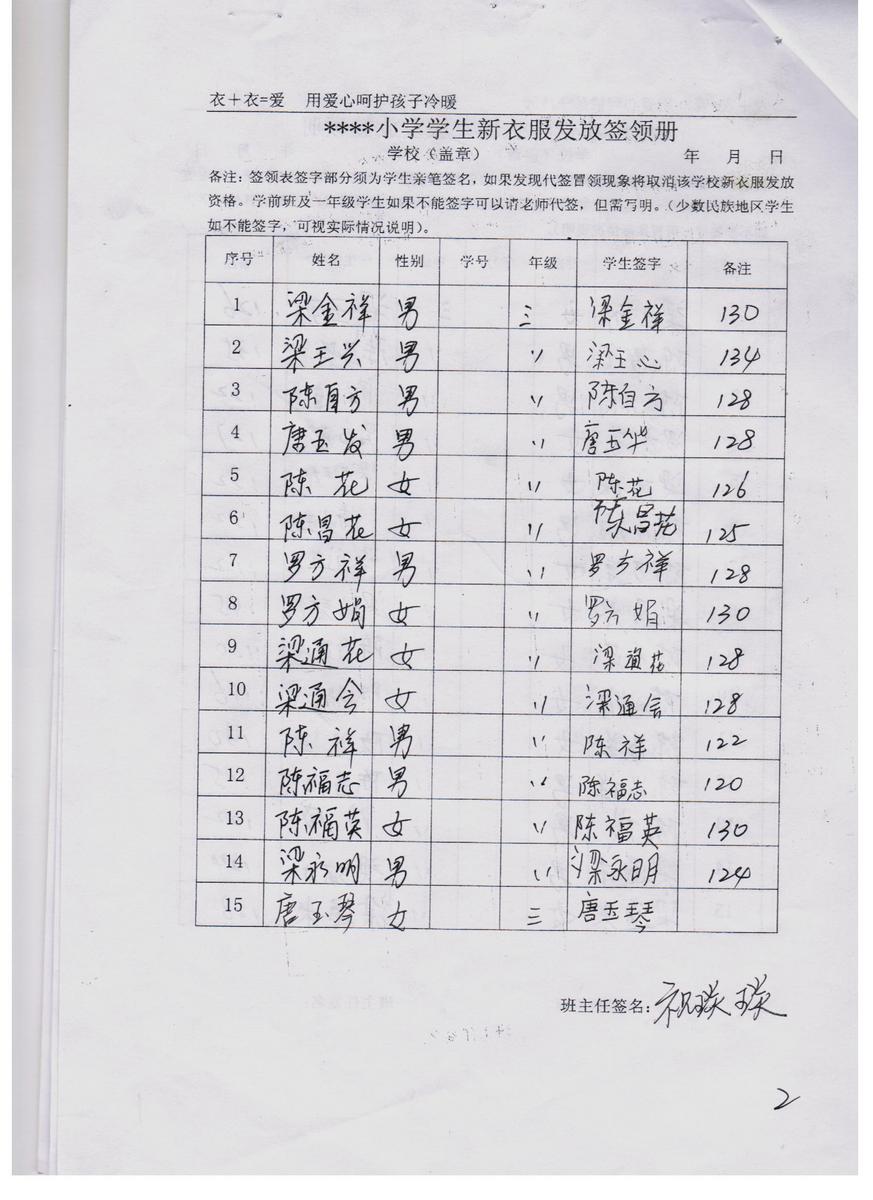 衣+衣=爱 用爱心呵护孩子冷暖
****小学学生新衣服发放签领册
学校（盖章） 年 月 日
备注：签领表签字部分须为学生亲笔签名，如果发现代签冒领现象将取消该学校新衣服发放
资格。学前班及一年级学生如果不能签字可以请老师代签，但需写明。（少数民族地区学生
如不能签字，可视实际情况说明）。
序号 姓名 性别 学号 年级 学生签字 备注
1 梁金祥 男 三 梁金祥 130
2 梁王兴 男 〃 梁王心 134
3 陈自方 男 〃 陈自方 128
4 唐玉发 男 〃 唐玉华 128
5 陈花 女 〃 陈花 126
6 陈昌花 女 〃 陈昌花 125
7 罗方祥 男 〃 罗方祥 128
8 罗方娟 女 〃 罗方娟 130
9 梁通花 女 〃 梁 花 128
10 梁通会 女 〃 梁通会 128
11 陈祥 男 〃 陈祥 122
12 陈福志 男 〃 陈福志 120
13 陈福英 女 〃 陈福英 130
14 梁永明 男 〃 梁永明 124
15 唐玉琴 女 三 唐玉琴
班主任签名：祝
2